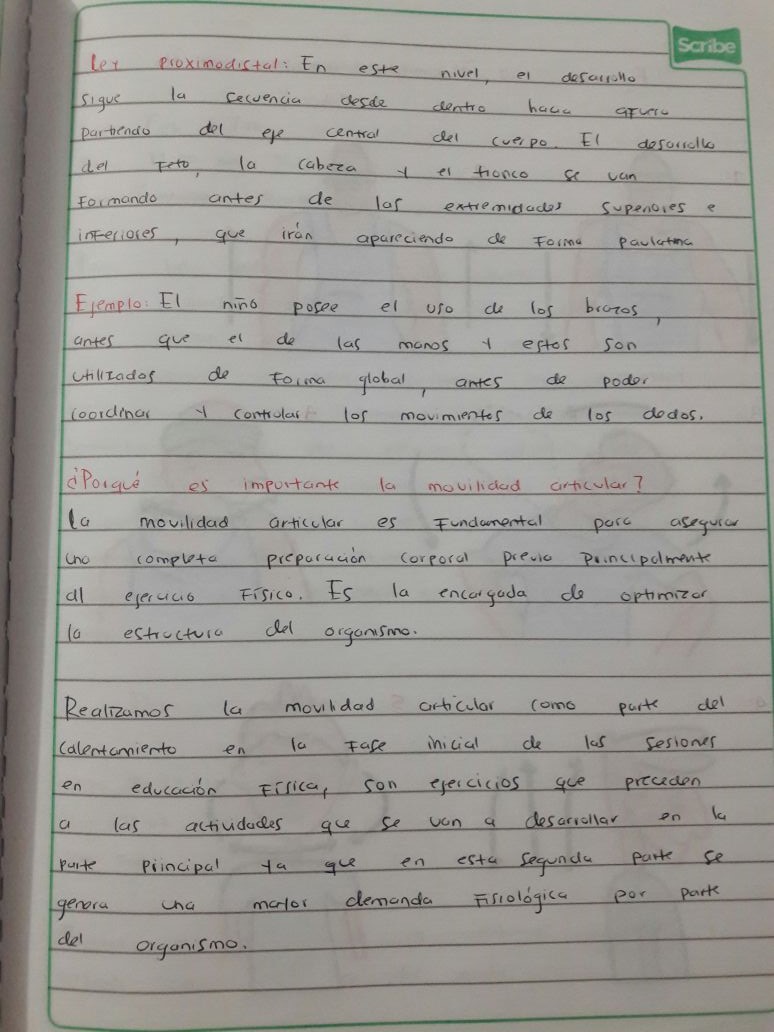 Scribe
Ley proximodistal: En este nivel, el desarrollo
sigue la secuencia desde dentro hacia afuera
partiendo del eje central del cuerpo. El desarrollo
del Feto, la cabeza y el tronco se van
Formando antes de las extremidades superiores e
inferiores, que irán apareciendo de Forma Paulatina
Ejemplo: El niño posee el uso de los brazos,
antes que el de las manos y estos son
utilizados de Forma global, antes de poder
coordinar y controlar los movimientos de los dedos.
¿Porqué es importante la movilidad articular?
La movilidad articular es Fundamental para asegurar
una completa preparación corporal previa principalmente
al ejercicio Físico. Es la encargada de optimizar
la estructura del organismo.
Realizamos la movilidad articular como parte del
calentamiento en la Fase inicial de las sesiones
en educación Física, son ejercicios que preceden
a las actividades que se van a desarrollar en la
parte principal ya que en esta segunda parte se
genera una mayor demanda Fisiológica por parte
del organismo.